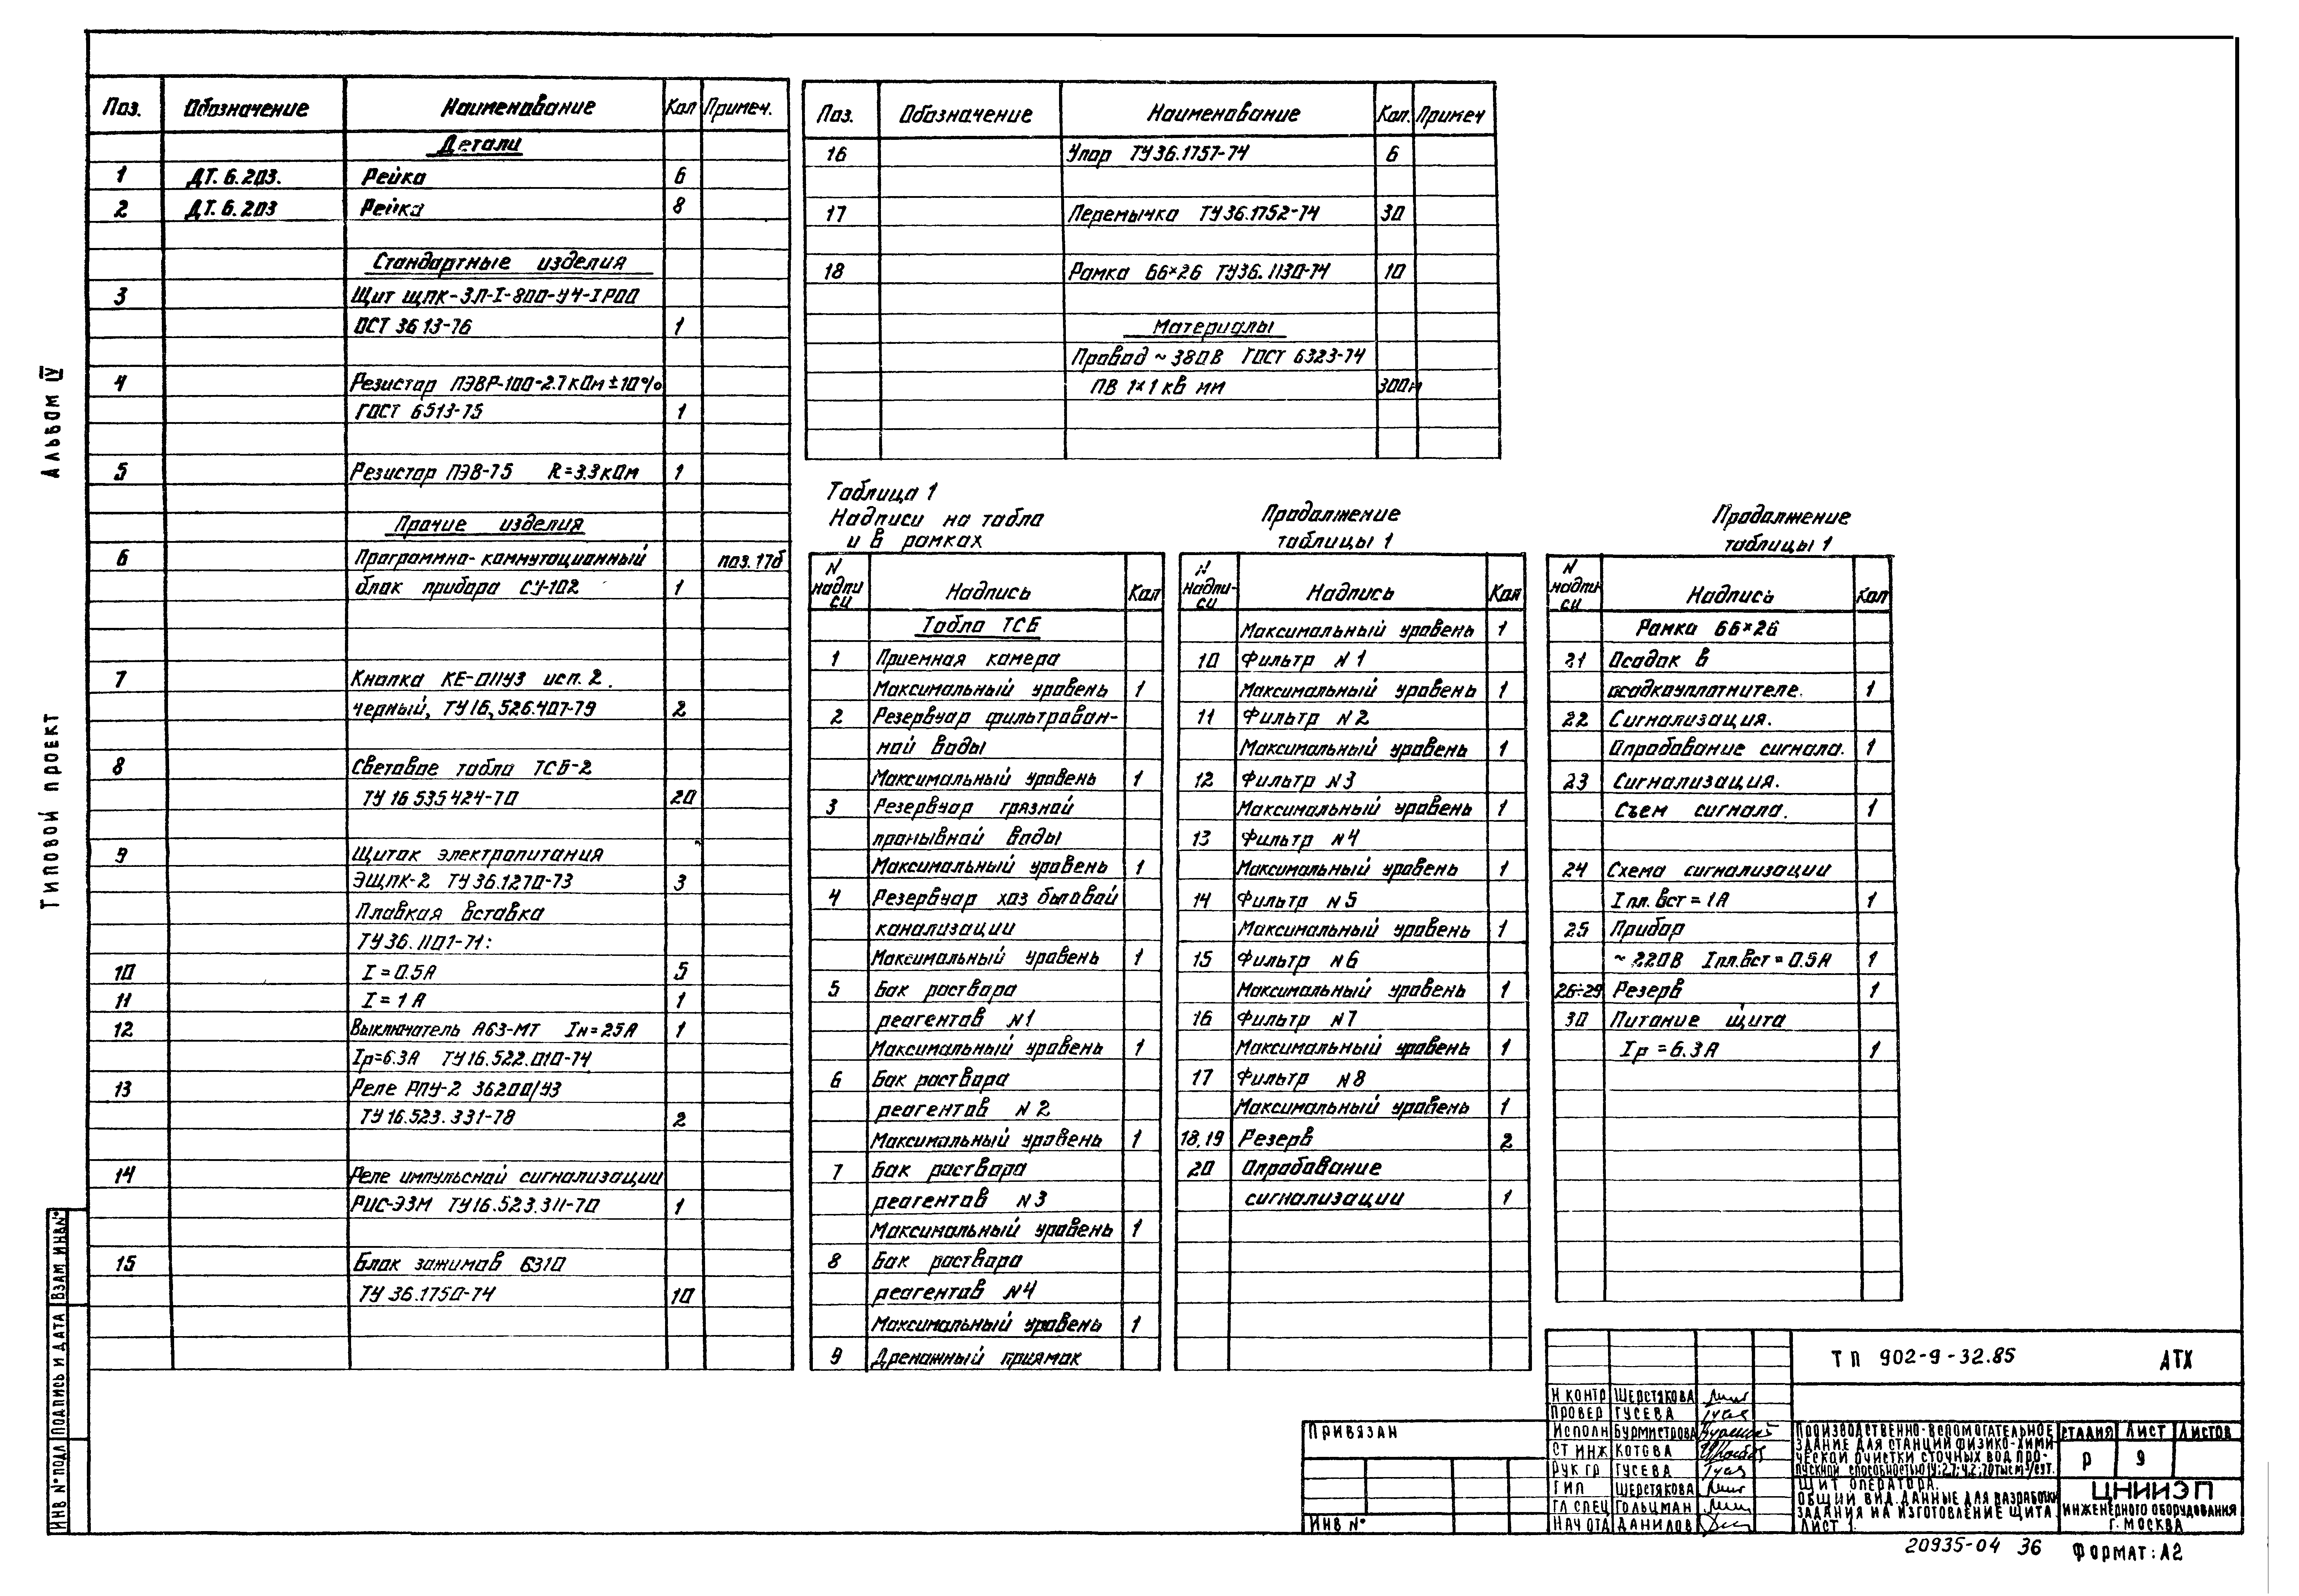 Альбом IV
Типовой проект
Поз. Обозначение Наименование Кол Примеч.
Детали
1 ДТ.6.203. Рейка 6
2 ДТ.6.203 Рейка 8
Стандартные изделия
3 Щит ЩПК-ЗП-I-800-У4-IP00
ОСТ 36 13-76 1
4 Резистор ПЭВР-100-2.7 кОм ±10%
ГОСТ 6513-75 1
5 Резистор ПЭВ-7.5 R=3.3 кОм 1
Прочие изделия
6 Программно-коммутационный поз. 17б
блок прибора СУ-102 1
7 Кнопка КЕ-011У3 исп. 2.
черный, ТУ16,526.407-79 2
8 Световое табло ТСБ-2
ТУ 16 535 424-70 20
9 Щиток электропитания
ЭЩПК-2 ТУ 36.1270-73 3
Плавкая вставка
ТУ 36.1101-71:
10 I = 0.5А 5
11 I = 1А 1
12 Выключатель А63-МТ Iн = 25А 1
Iр=6.3А ТУ16.522.010-74
13 Реле РПУ-2 36200/У3
ТУ 16.523.331-78 2
14 Реле импульсной сигнализации
РИС-Э3М ТУ16.523.311-70 1
15 Блок зажимов Б310
ТУ 36.1750-74 10
Поз. Обозначение Наименование Кол. Примеч
16 Упор ТУ 36.1757-74 6
17 Перемычка ТУ 36.1752-74 30
18 Рамка 66×26 ТУ36.1130-74 10
Материалы
Провод ~ 380В ГОСТ 6323-74
ПВ 1×1 кв мм 300м
Таблица 1
Надписи на табло
и в рамках
N надписи Надпись Кол
Табло ТСБ
1 Приемная камера
Максимальный уровень 1
2 Резервуар фильтрован-
ной воды
Максимальный уровень 1
3 Резервуар грязной
промывной воды
Максимальный уровень 1
4 Резервуар хоз бытовой
канализации
Максимальный уровень 1
5 Бак раствора
реагентов N1
Максимальный уровень 1
6 Бак раствора
реагентов N2
Максимальный уровень 1
7 Бак раствора
реагентов N3
Максимальный уровень 1
8 Бак раствора
реагентов N4
Максимальный уровень 1
9 Дренажный приямок
Продолжение
таблицы 1
N надпи-си Надпись Кол
Максимальный уровень 1
10 Фильтр N1
Максимальный уровень 1
11 Фильтр N2
Максимальный уровень 1
12 Фильтр N3
Максимальный уровень 1
13 Фильтр N4
Максимальный уровень 1
14 Фильтр N5
Максимальный уровень 1
15 Фильтр N6
Максимальный уровень 1
16 Фильтр N7
Максимальный уровень 1
17 Фильтр N8
Максимальный уровень 1
18.19 Резерв 2
20 Опробование
сигнализации 1
Продолжение
таблицы 1
N надпи-си Надпись Кол
Рамка 66×26
21 Осадок в
осадкоуплотнителе. 1
22 Сигнализация.
Опробование сигнала. 1
23 Сигнализация.
Съем сигнала. 1
24 Схема сигнализации
Iпл.вст = 1А 1
25 Прибор
~ 220В Iпл.вст = 0.5А 1
26÷29 Резерв 1
30 Питание щита
Iр = 6.3А 1
ТП 902-9-32.85 АТХ
Н контр Шерстякова
Провер Гусева
Исполн Бурмистрова
Ст инж Котова
Рук гр Гусева
ГИП Шерстякова
Гл спец Гольцман
Нач отд Данилов
Привязан
Инв №
Производственно-вспомогательное
здание для станции физико-хими
ческой очистки сточных вод про-
пускной способностью 1,4; 2,7; 4,2; 7,0 тыс м³/сут.
Щит оператора.
Общий вид. Данные для разработки
задания на изготовление щита.
Лист 1.
Стадия Лист Листов
Р 9
ЦНИИЭП
инженерного оборудования
г. Москва
20935-04 36
Формат: А2
Инв № подл Подпись и дата Взам инв №